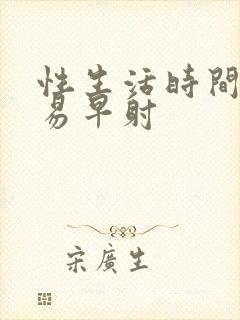 性生活時間
易早射
宋廣生